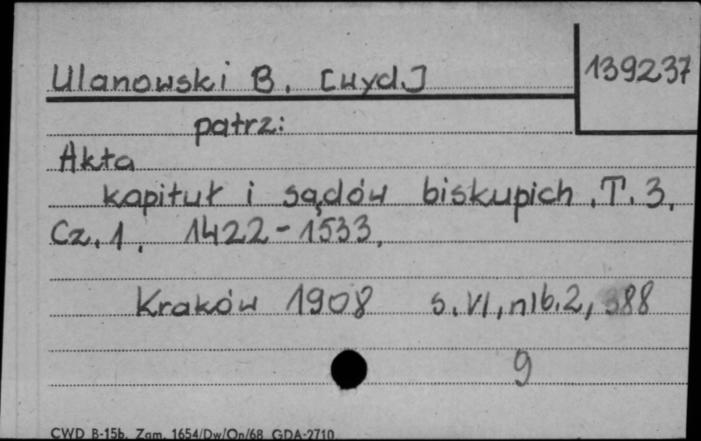 139237
Ulanowski B. [wyd.]
patrz:
Akta
kapituł i sądów biskupich. T. 3.
Cz. 1. 1422-1533.
Kraków 1908 s. VI, nlb. 2, 388
9
CWD B-15b. Zam. 1654/Dw/On/68 GDA-2710